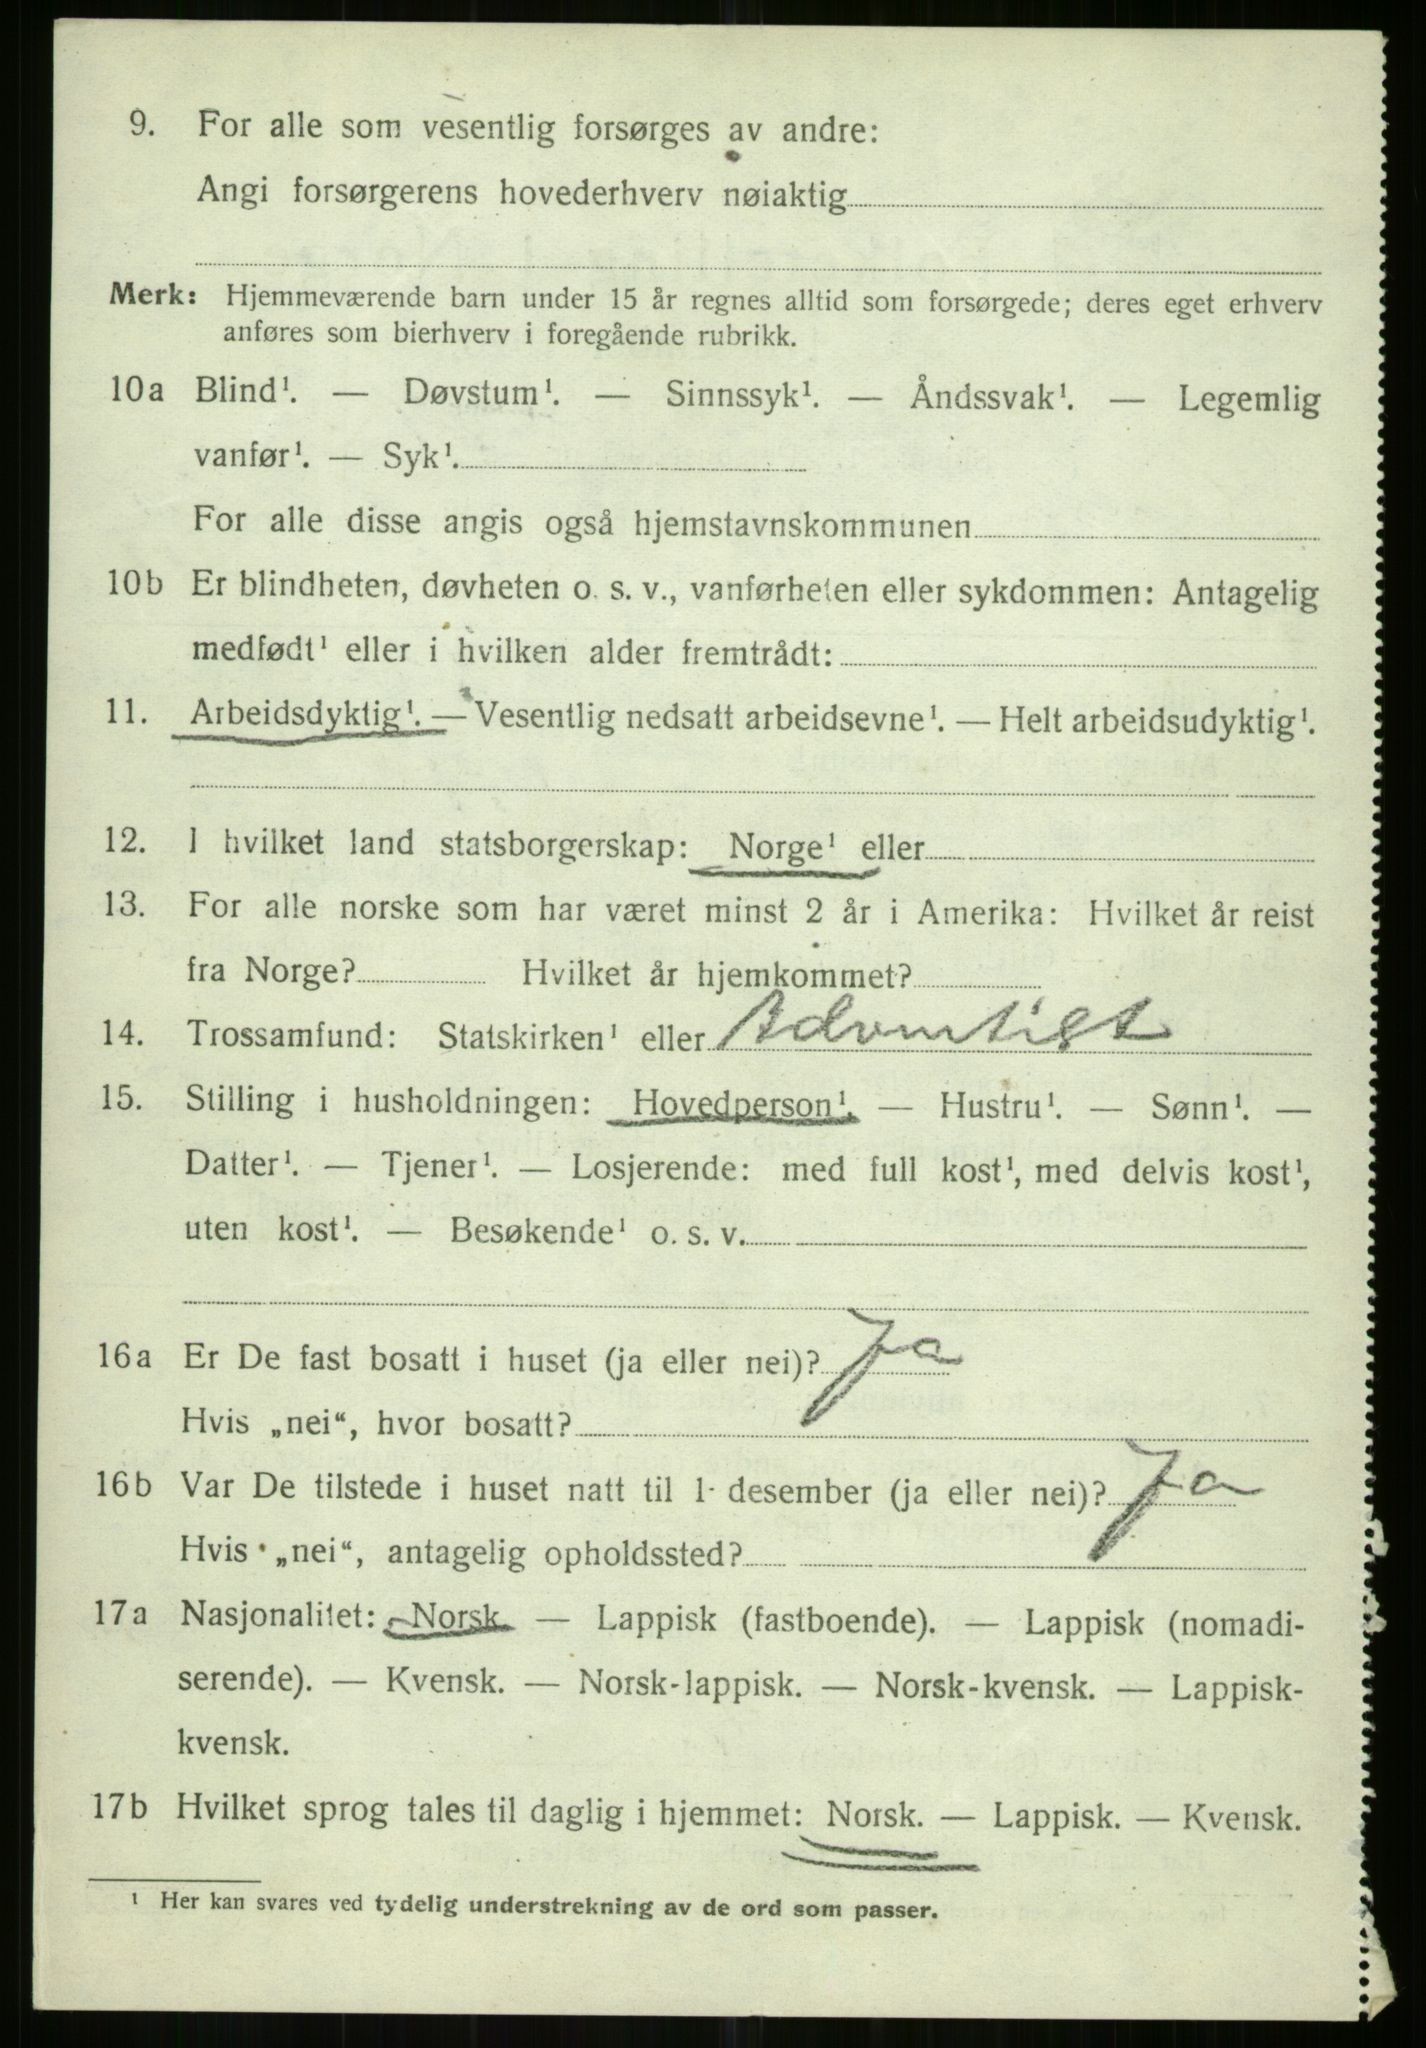 9. For alle som vesentlig forsørges av andre:
Angi forsørgerens hovederhverv nøiaktig
Merk: Hjemmeværende barn under 15 år regnes alltid som forsørgede; deres eget erhverv
anføres som bierhverv i foregående rubrikk.
10a Blind¹. — Døvstum¹. — Sinnssyk¹. — Åndssvak¹. — Legemlig
vanfør¹. — Syk¹.
For alle disse angis også hjemstavnskommunen
10b Er blindheten, døvheten o. s. v., vanførheten eller sykdommen: Antagelig
medfødt¹ eller i hvilken alder fremtrådt:
11. Arbeidsdyktig¹. — Vesentlig nedsatt arbeidsevne¹. — Helt arbeidsudyktig¹.
12. I hvilket land statsborgerskap: Norge¹ eller
13. For alle norske som har været minst 2 år i Amerika: Hvilket år reist
fra Norge? Hvilket år hjemkommet?
14. Trossamfund: Statskirken¹ eller Adventist
15. Stilling i husholdningen: Hovedperson¹. — Hustru¹. — Sønn¹. —
Datter¹. — Tjener¹. — Losjerende: med full kost¹, med delvis kost¹,
uten kost¹. — Besøkende¹ o. s. v.
16a Er De fast bosatt i huset (ja eller nei)? Ja
Hvis „nei“, hvor bosatt?
16b Var De tilstede i huset natt til 1. desember (ja eller nei)? Ja
Hvis „nei“, antagelig opholdssted?
17a Nasjonalitet: Norsk. — Lappisk (fastboende). — Lappisk (nomadi-
serende). — Kvensk. — Norsk-lappisk. — Norsk-kvensk. — Lappisk-
kvensk.
17b Hvilket sprog tales til daglig i hjemmet: Norsk. — Lappisk. — Kvensk.
¹ Her kan svares ved tydelig understrekning av de ord som passer.